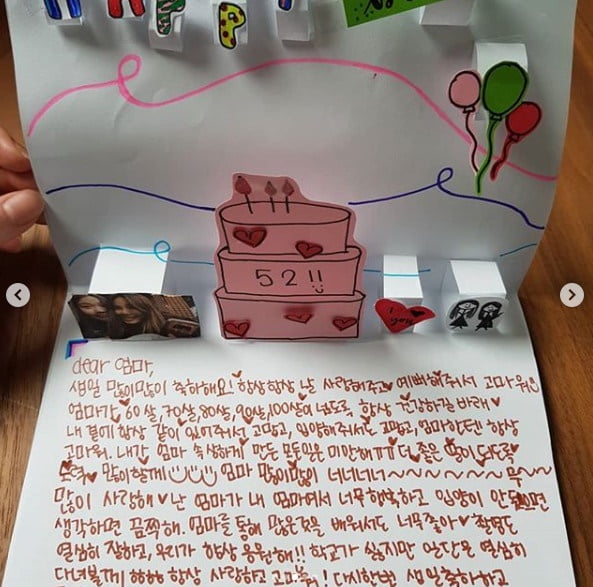 HAPPY
52!!
I ♥ you
dear 엄마,
생일 많이많이 축하해요! 항상항상 날 사랑해주고 예뻐해주서 고마워
엄마가 60살, 70살, 80살, 90살, 100살이 넘도록 항상 건강하길 바래♥
내 곁에 항상 같이 있어주셔서 고맙고, 입양해주셔서도 고맙고, 엄마한텐 항상
고마워. 내가 엄마 속상하게 만든 모든일은 미안해ㅠㅠ 더 좋은 딸이 되도록
노력 많이할께 엄마 많이많이 너너너너~~~~~~~무~~
많이 사랑해♥ 난 엄마가 내 엄마여서 너무행복하고 입양이 안됐으면
생각하면 끔찍해. 엄마를 통해 많은것을 배워서도 너무좋아♥ 촬영도
열심히 잘하고, 우리가 항상 응원해!! 학교가 싫지만 일단은 열심히
다녀볼께 ㅎㅎㅎ 항상 사랑하고 고마워! 다시한번 생일축하하고